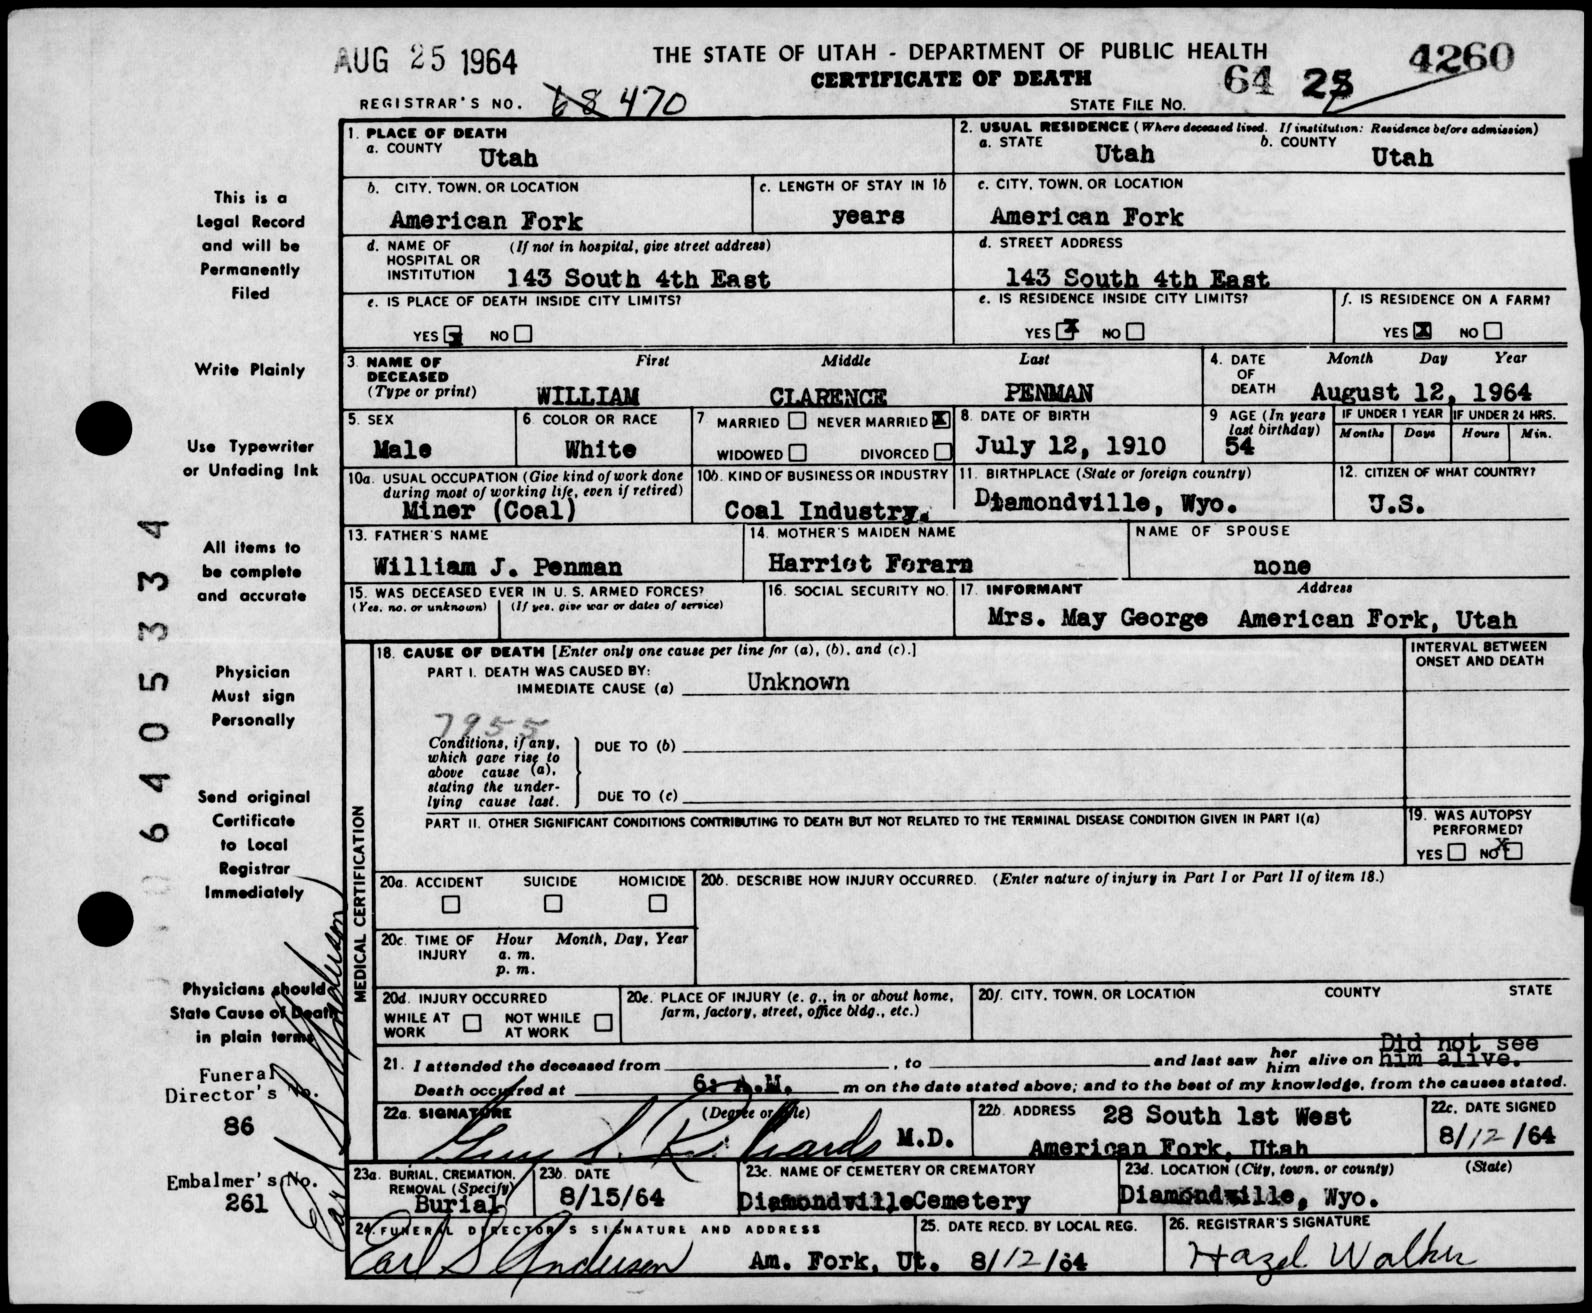 AUG 25 1964
THE STATE OF UTAH - DEPARTMENT OF PUBLIC HEALTH
4260
CERTIFICATE OF DEATH
64 25
REGISTRAR'S NO. 68 470
STATE FILE No.
This is a
Legal Record
and will be
Permanently
Filed
Write Plainly
Use Typewriter
or Unfading Ink
All items to
be complete
and accurate
Physician
Must sign
Personally
Send original
Certificate
to Local
Registrar
Immediately
Physicians should
State Cause of Death
in plain terms
Funeral
Director's No.
86
Embalmer's No.
261
Earl S Anderson
6405334
1. PLACE OF DEATH
a. COUNTY
Utah
2. USUAL RESIDENCE (Where deceased lived. If institution: Residence before admission)
a. STATE
Utah
b. COUNTY
Utah
b. CITY, TOWN, OR LOCATION
American Fork
c. LENGTH OF STAY IN 1b
years
c. CITY, TOWN, OR LOCATION
American Fork
d. NAME OF HOSPITAL OR INSTITUTION
(If not in hospital, give street address)
143 South 4th East
d. STREET ADDRESS
143 South 4th East
e. IS PLACE OF DEATH INSIDE CITY LIMITS?
YES X NO
e. IS RESIDENCE INSIDE CITY LIMITS?
YES X NO
f. IS RESIDENCE ON A FARM?
YES X NO
3. NAME OF DECEASED
(Type or print)
First Middle Last
WILLIAM CLARENCE PENMAN
4. DATE OF DEATH
Month Day Year
August 12, 1964
5. SEX
Male
6. COLOR OR RACE
White
7 MARRIED NEVER MARRIED X
WIDOWED DIVORCED
8. DATE OF BIRTH
July 12, 1910
9 AGE (In years last birthday)
54
IF UNDER 1 YEAR
Months Days
IF UNDER 24 HRS.
Hours Min.
10a. USUAL OCCUPATION (Give kind of work done during most of working life, even if retired)
Miner (Coal)
10b. KIND OF BUSINESS OR INDUSTRY
Coal Industry.
11. BIRTHPLACE (State or foreign country)
Diamondville, Wyo.
12. CITIZEN OF WHAT COUNTRY?
U.S.
13. FATHER'S NAME
William J. Penman
14. MOTHER'S MAIDEN NAME
Harriet Forarn
NAME OF SPOUSE
none
15. WAS DECEASED EVER IN U. S. ARMED FORCES?
(Yes, no, or unknown) (If yes, give war or dates of service)
16. SOCIAL SECURITY NO.
17. INFORMANT Address
Mrs. May George American Fork, Utah
MEDICAL CERTIFICATION
18. CAUSE OF DEATH [Enter only one cause per line for (a), (b), and (c).]
INTERVAL BETWEEN ONSET AND DEATH
PART I. DEATH WAS CAUSED BY:
IMMEDIATE CAUSE (a) Unknown
7955
Conditions, if any, which gave rise to above cause (a), stating the underlying cause last.
DUE TO (b)
DUE TO (c)
PART II. OTHER SIGNIFICANT CONDITIONS CONTRIBUTING TO DEATH BUT NOT RELATED TO THE TERMINAL DISEASE CONDITION GIVEN IN PART I(a)
19. WAS AUTOPSY PERFORMED?
YES NO X
20a. ACCIDENT SUICIDE HOMICIDE
20b. DESCRIBE HOW INJURY OCCURRED. (Enter nature of injury in Part I or Part II of item 18.)
20c. TIME OF INJURY
Hour Month, Day, Year
a. m.
p. m.
20d. INJURY OCCURRED
WHILE AT WORK NOT WHILE AT WORK
20e. PLACE OF INJURY (e. g., in or about home, farm, factory, street, office bldg., etc.)
20f. CITY, TOWN, OR LOCATION COUNTY STATE
21. I attended the deceased from , to and last saw her him alive on Did not see him alive.
Death occurred at 6: A.M. m on the date stated above; and to the best of my knowledge, from the causes stated.
22a. SIGNATURE (Degree or title)
Guy S. Richards M.D.
22b. ADDRESS 28 South 1st West
American Fork, Utah
22c. DATE SIGNED
8/12/64
23a. BURIAL, CREMATION, REMOVAL (Specify)
Burial
23b. DATE
8/15/64
23c. NAME OF CEMETERY OR CREMATORY
Diamondville Cemetery
23d. LOCATION (City, town, or county) (State)
Diamondville, Wyo.
24. FUNERAL DIRECTOR'S SIGNATURE AND ADDRESS
Earl S Anderson Am. Fork, Ut.
25. DATE RECD. BY LOCAL REG.
8/12/64
26. REGISTRAR'S SIGNATURE
Hazel Walker